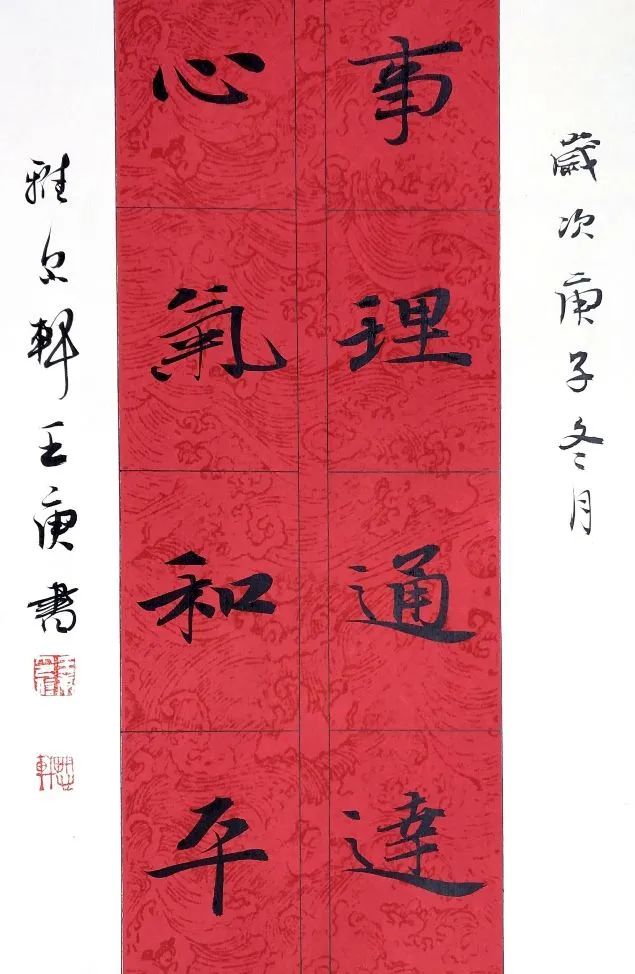 歲次庚子冬月
事理通達
心氣和平
雅軒王庚書